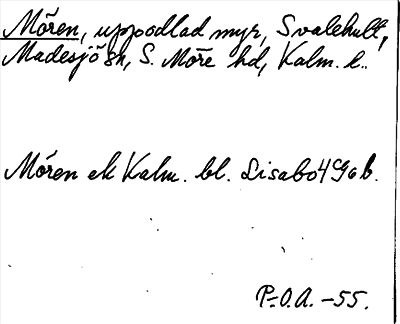 Mören, uppodlad myr, Svalehult,
Madesjö sn, S. Möre hd, Kalm. l.
Mören ek Kalm. bl. Lisabo 4 G a b.
P.O.A. -55.